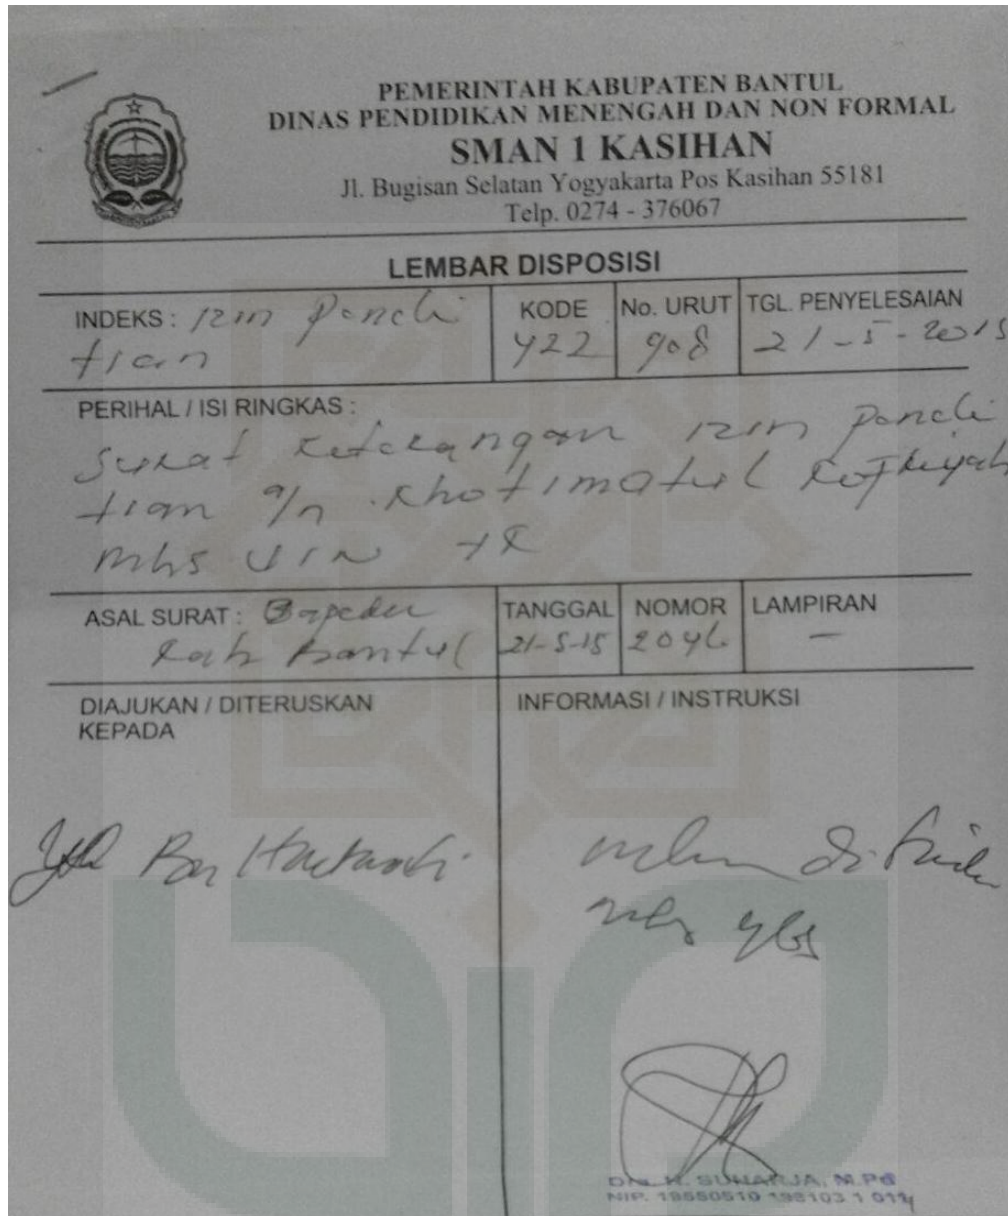 PEMERINTAH KABUPATEN BANTUL
DINAS PENDIDIKAN MENENGAH DAN NON FORMAL
SMAN 1 KASIHAN
Jl. Bugisan Selatan Yogyakarta Pos Kasihan 55181
Telp. 0274 - 376067
LEMBAR DISPOSISI
INDEKS : izin Peneli
tian
KODE
422
No. URUT
908
TGL. PENYELESAIAN
21-5-2015
PERIHAL / ISI RINGKAS :
Surat Keterangan izin Peneli
tian a/n Khotimatul
mhs UIN YK
ASAL SURAT : Bapeda
Kab Bantul
TANGGAL
21-5-15
NOMOR
2046
LAMPIRAN
-
DIAJUKAN / DITERUSKAN
KEPADA
INFORMASI / INSTRUKSI
Yth Bu
di
mhs ybs
DRS. H. SUHARJA, M.Pd
NIP.